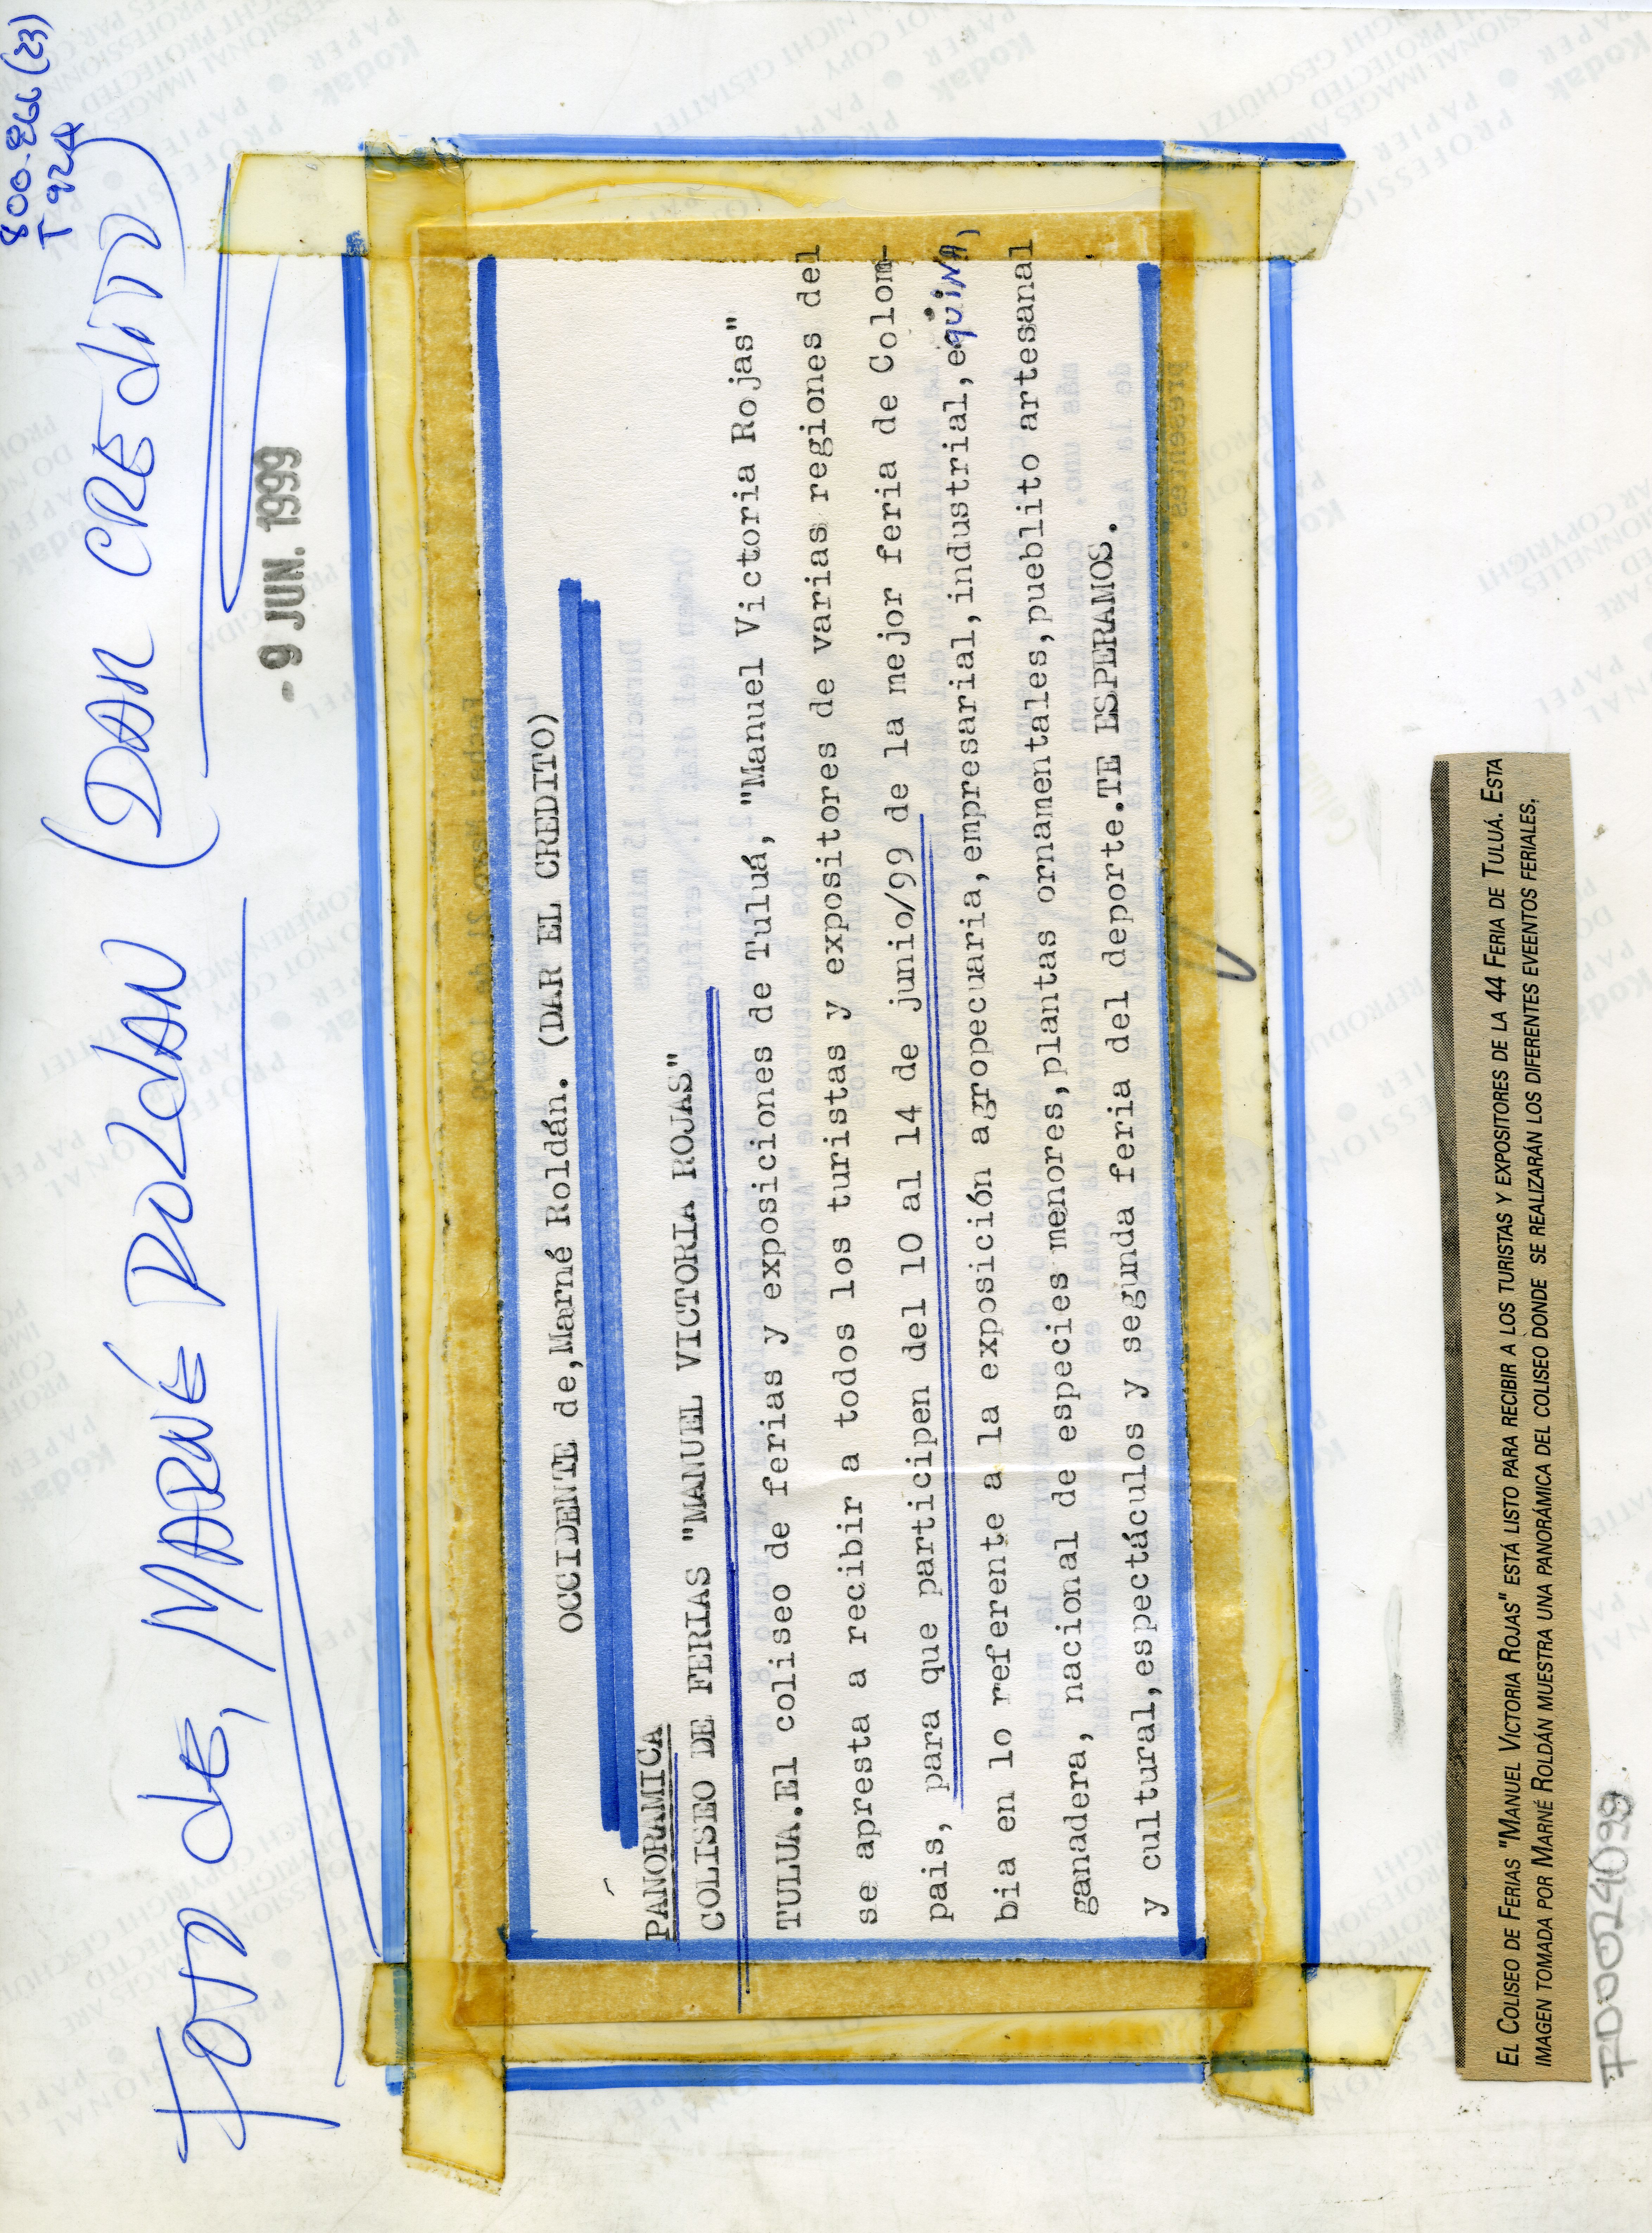 800-866(23)
T924
FOTO de, MARNÉ ROLDAN (DAR CREDITO)
- 9 JUN. 1999
OCCIDENTE de,Marné Roldán. (DAR EL CREDITO)
PANORAMICA
COLISEO DE FERIAS "MANUEL VICTORIA ROJAS"
TULUA.El coliseo de ferias y exposiciones de Tuluá, "Manuel Victoria Rojas"
se apresta a recibir a todos los turistas y expositores de varias regiones del
pais, para que participen del 10 al 14 de junio/99 de la mejor feria de Colom-
bia en lo referente a la exposición agropecuaria,empresarial,industrial,equiNA,
ganadera, nacional de especies menores,plantas ornamentales,pueblito artesanal
y cultural,espectáculos y segunda feria del deporte.TE ESPERAMOS.
EL COLISEO DE FERIAS "MANUEL VICTORIA ROJAS" ESTÁ LISTO PARA RECIBIR A LOS TURISTAS Y EXPOSITORES DE LA 44 FERIA DE TULUÁ. ESTA
IMAGEN TOMADA POR MARNÉ ROLDÁN MUESTRA UNA PANORÁMICA DEL COLISEO DONDE SE REALIZARÁN LOS DIFERENTES EVEENTOS FERIALES.
FD00024099